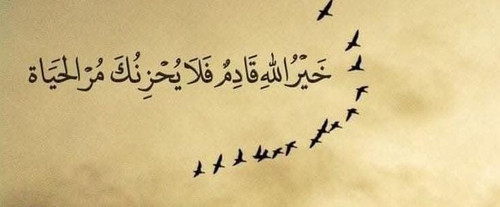 خَيْرُ اللهِ قَادِمٌ فَلَا يُحْزِنُكَ مُرّ الحَيَاة